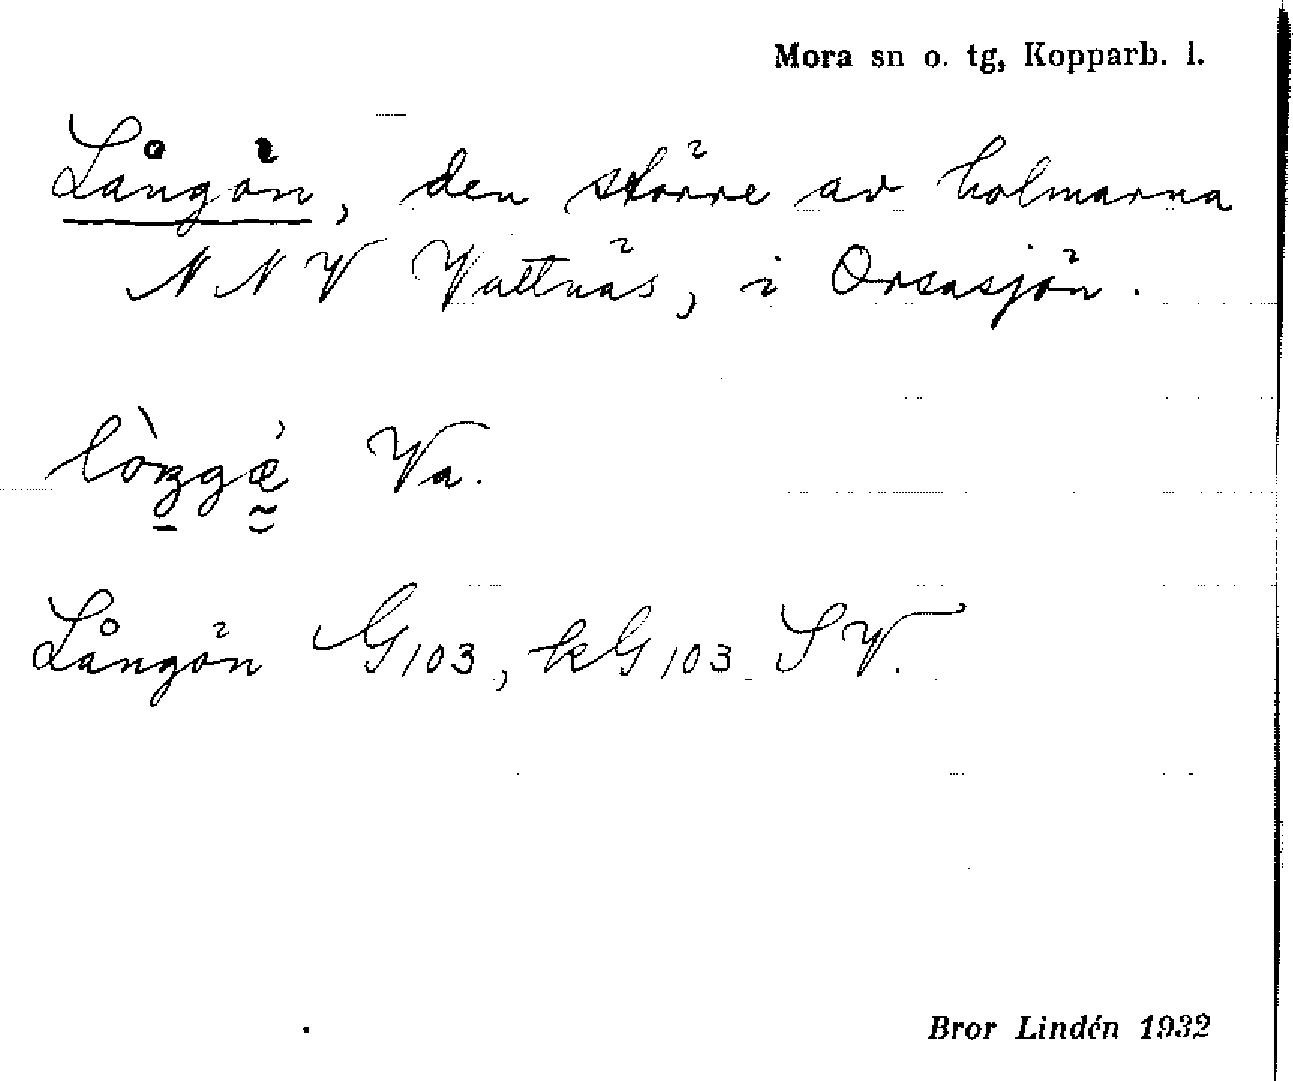 Mora sn o. tg, Kopparb. l.
Långön, den större av holmarna
NNV Vattnäs, i Orsasjön.
Va.
Långön G103, kG103 SV.
Bror Lindén 1932